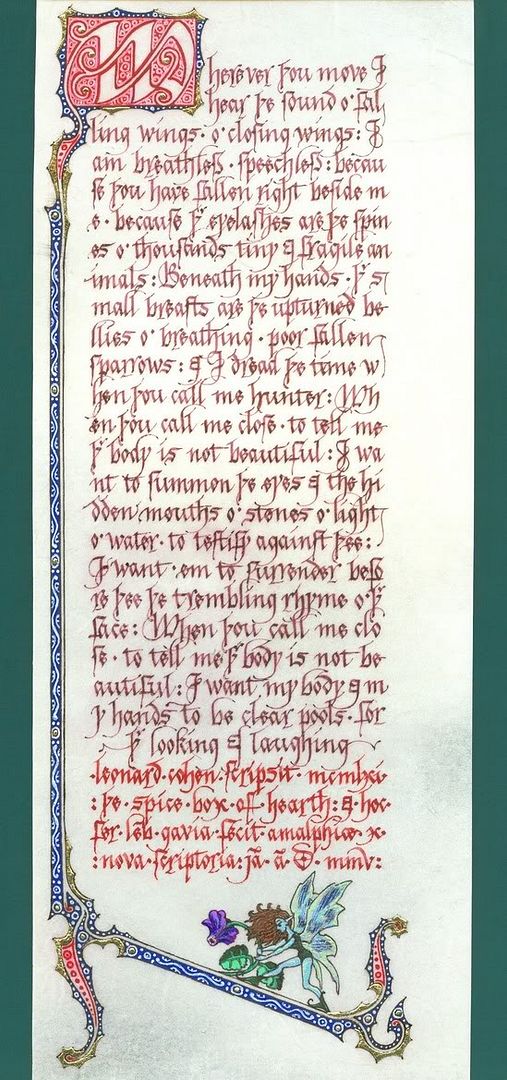 Wherever þou move I
hear þe sound o' fal
ling wings · o' closing wings : I
am breathleß · speechleß : becau
se þou have fallen right beside m
e · because þy eyelashes are þe spin
es o' thousands tiny & fragile an
imals : Beneath my hands · þy s
mall breasts are þe upturned be
llies o' breathing · poor fallen
sparrows : & I dread þe time w
hen þou call me hunter : Wh
en þou call me close · to tell me
þy body is not beautiful : I wa
nt to summon þe eyes & the hi
dden mouths o' stones o' light
o' water · to testify against þee :
I want 'em to surrender befo
re þee þe trembling rhyme o' þy
face : When þou call me clo
se · to tell me þy body is not be
autiful : I want my body & m
y hands to be clear pools · for
þy looking & laughing
· leonard · cohen · scripsit · mcmlxi ·
: þe · spice · box · of · hearth : & hoc ·
fecit amalphiæ · x ·
: nova · scriptoria : D · mmv :